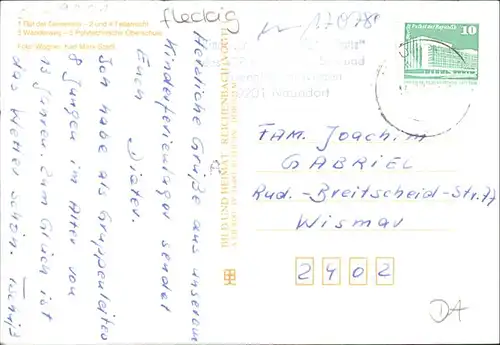 fleckig
17078
1 Rat der Gemeinde – 2 und 4 Teilansicht
3 Wanderweg – 5 Polytechnische Oberschule
Foto: Wagner, Karl-Marx-Stadt
Herzliche Grüße aus unserem
Kinderferienlager sendet
Euch
Dieter.
Ich habe als Gruppenleiter
8 Jungen im Alter von
13 Jahren. Zum Glück ist
das Wetter schön.
BILD UND HEIMAT REICHENBACH
10
FAM. Joachim
GABRIEL
Rud.-Breitscheid-Str. 77
Wismar
2402
DA